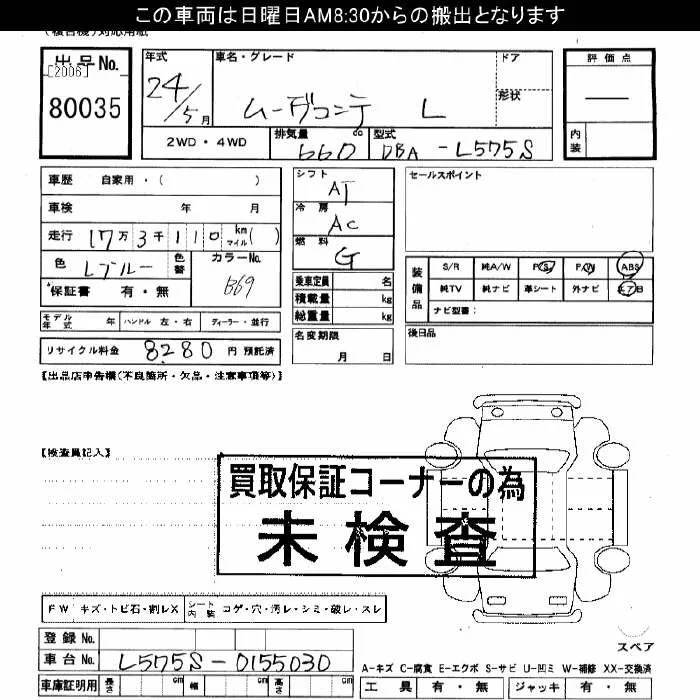 この車両は日曜日AM8:30からの搬出となります
出品No.
[2006]
80035
年式
24/5月
車名・グレード
ムーヴコンテ L
ドア
形状
評価点
内装
2WD・4WD
排気量 cc
660
型式
DBA-L575S
車歴 自家用・( )
車検 年 月
走行 17万3千110 km マイル( )
色 Lブルー
色替
カラーNo.
B69
*保証書 有・無
シフト
AT
冷房
AC
燃料
G
乗車定員 名
積載量 kg
総重量 kg
名変期限
月 日
セールスポイント
装備品
S/R 純A/W P/S P/W ABS
純TV 純ナビ 革シート 外ナビ エアB
ナビ型番:
後日品
モデル年式 年 ハンドル 左・右 ディーラー・並行
リサイクル料金 8280 円 預託済
【出品店申告欄(不良箇所・欠品・注意事項等)】
【検査員記入】
買取保証コーナーの為
未検査
FW キズ・トビ石・割レX シート内装 コゲ・穴・汚レ・シミ・破レ・スレ
登録No.
車台No. L575S-0155030
車庫証明用 長さ cm 幅 cm 高さ cm
スペア
A-キズ C-腐食 E-エクボ S-サビ U-凹ミ W-補修 XX-交換済
工具 有・無 ジャッキ 有・無